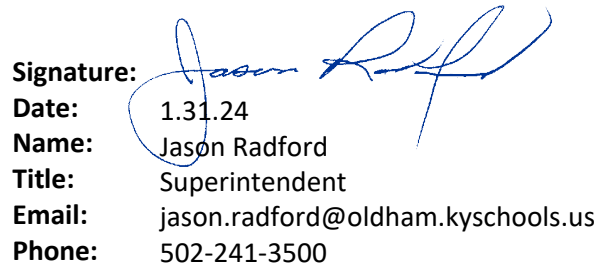 Signature: Jason Radford
Date: 1.31.24
Name: Jason Radford
Title: Superintendent
Email: jason.radford@oldham.kyschools.us
Phone: 502-241-3500